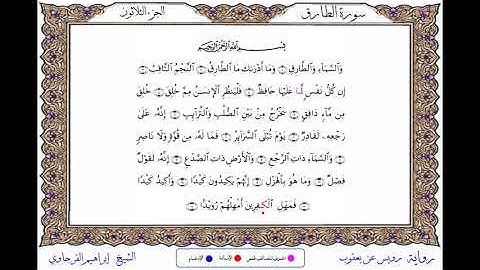 سورة الطارق
الجزء الثلاثون
بِسْمِ اللَّهِ الرَّحْمَٰنِ الرَّحِيمِ
وَالسَّمَاءِ وَالطَّارِقِ ۝ وَمَا أَدْرَىٰكَ مَا الطَّارِقُ ۝ النَّجْمُ الثَّاقِبُ ۝
إِن كُلُّ نَفْسٍ لَمَا عَلَيْهَا حَافِظٌ ۝ فَلْيَنظُرِ الْإِنسَٰنُ مِمَّ خُلِقَ ۝ خُلِقَ
مِن مَّاءٍ دَافِقٍ ۝ يَخْرُجُ مِنۢ بَيْنِ الصُّلْبِ وَالتَّرَائِبِ ۝ إِنَّهُ عَلَىٰ
رَجْعِهِ لَقَادِرٌ ۝ يَوْمَ تُبْلَى السَّرَائِرُ ۝ فَمَا لَهُ مِن قُوَّةٍ وَلَا نَاصِرٍ
۝ وَالسَّمَاءِ ذَاتِ الرَّجْعِ ۝ وَالْأَرْضِ ذَاتِ الصَّدْعِ ۝ إِنَّهُ لَقَوْلٌ
فَصْلٌ ۝ وَمَا هُوَ بِالْهَزْلِ ۝ إِنَّهُمْ يَكِيدُونَ كَيْدًا ۝ وَأَكِيدُ كَيْدًا
۝ فَمَهِّلِ الْكَٰفِرِينَ أَمْهِلْهُمْ رُوَيْدًا ۝
رواية رويس عن يعقوب
الإمالة
الشيخ إبراهيم القرجاوي